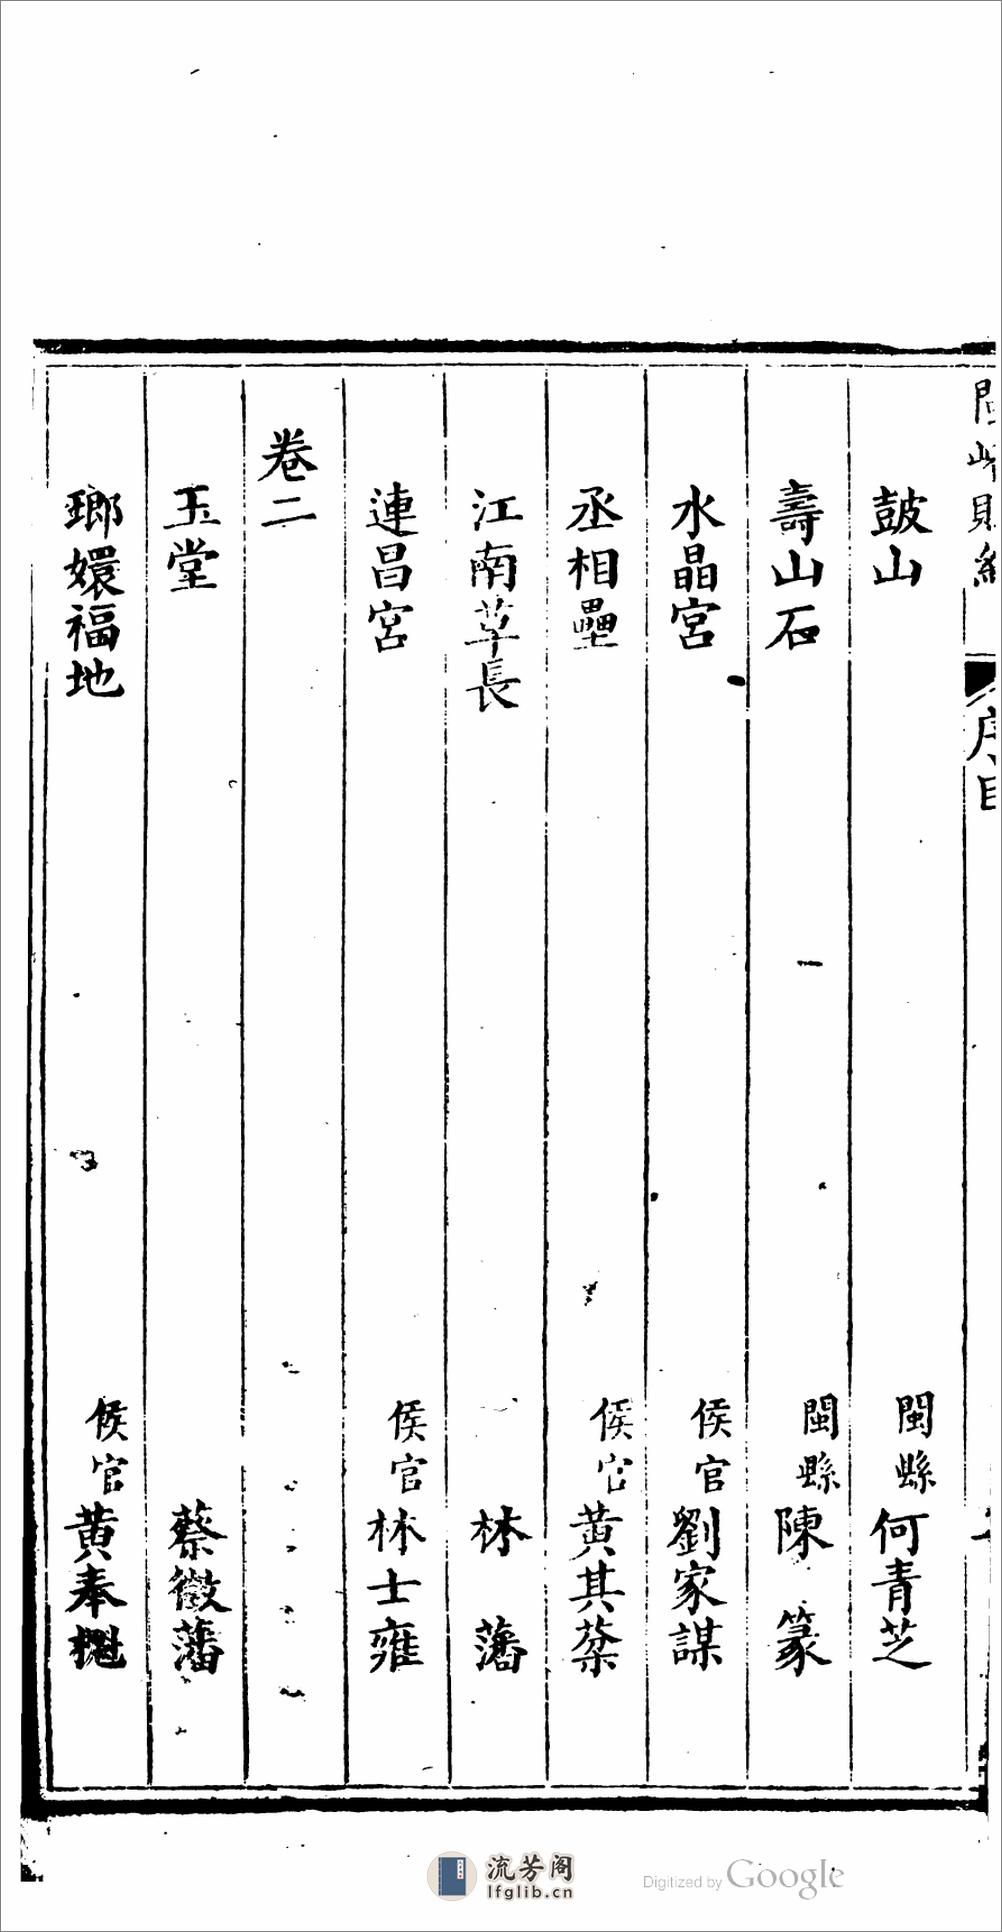 序目
鼓山 閩縣 何青芝
壽山石 閩縣 陳篆
水晶宮 侯官 劉家謀
丞相壘 侯官 黃其棻
江南草長 林藩
連昌宮 侯官 林士雍
卷二
玉堂 蔡徵藩
瑯嬛福地 侯官 黃奉
流芳阁
lfglib.cn
Digitized by Google